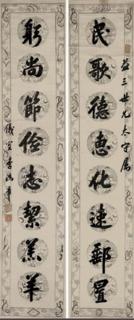 益三世兄太守屬
民歌德惠化速郵置
躬尚節儉志絜羔羊
李鴻章